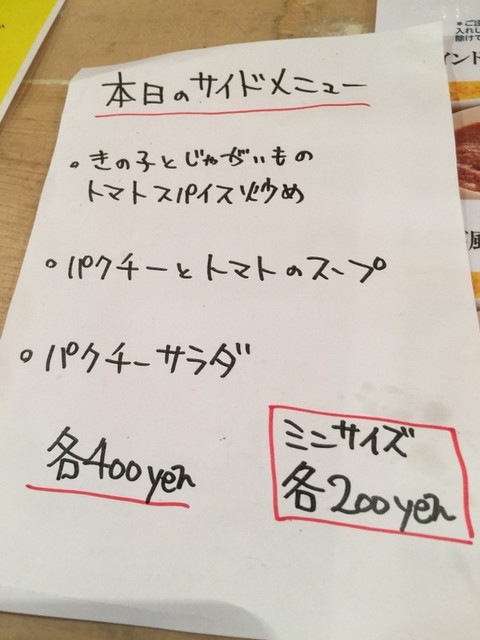 本日のサイドメニュー
。きの子とじゃがいもの
トマトスパイス炒め
。パクチーとトマトのスープ
。パクチーサラダ
各400yen
ミニサイズ
各200yen